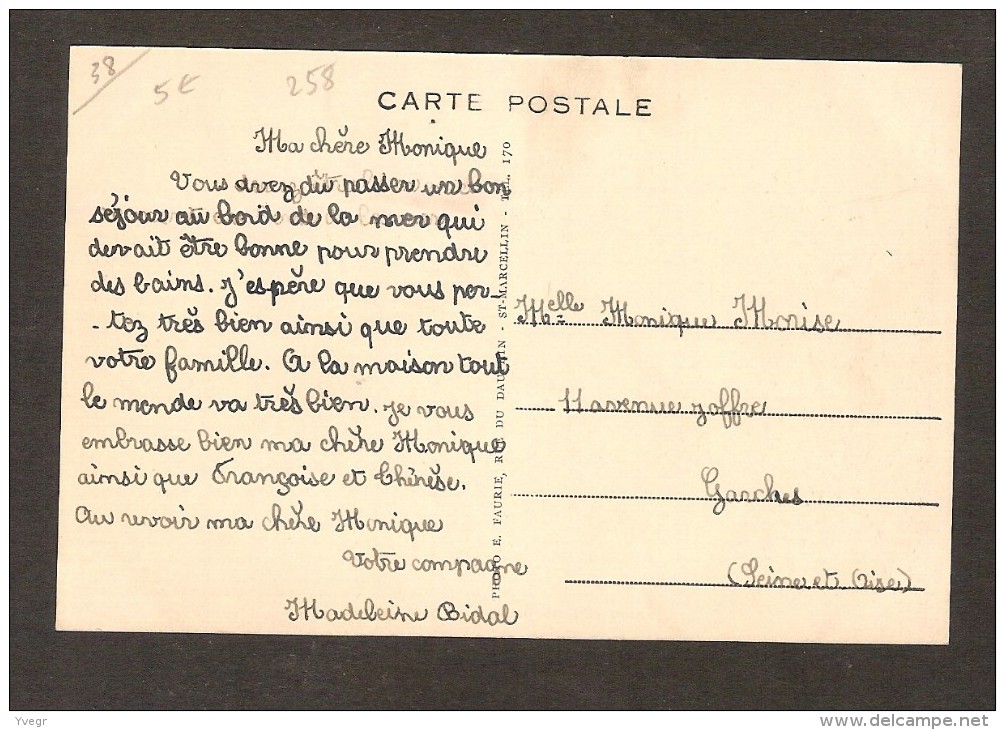 38
5€
258
CARTE POSTALE
Ma chère Monique
Vous avez dû passer un bon
séjour au bord de la mer qui
devait être bonne pour prendre
des bains. J'espère que vous por-
-tez très bien ainsi que toute
votre famille. A la maison tout
le monde va très bien. Je vous
embrasse bien ma chère Monique
ainsi que Françoise et Thérèse.
Au revoir ma chère Monique
Votre compagne
Madeleine Bidal
PHOTO E. FAURIE, RUE DU DAUPHIN - ST-MARCELLIN - TÉL. 170
Melle Monique Morise
11 avenue Joffre
Garches
(Seine et Oise)
Yvegr
www.delcampe.net